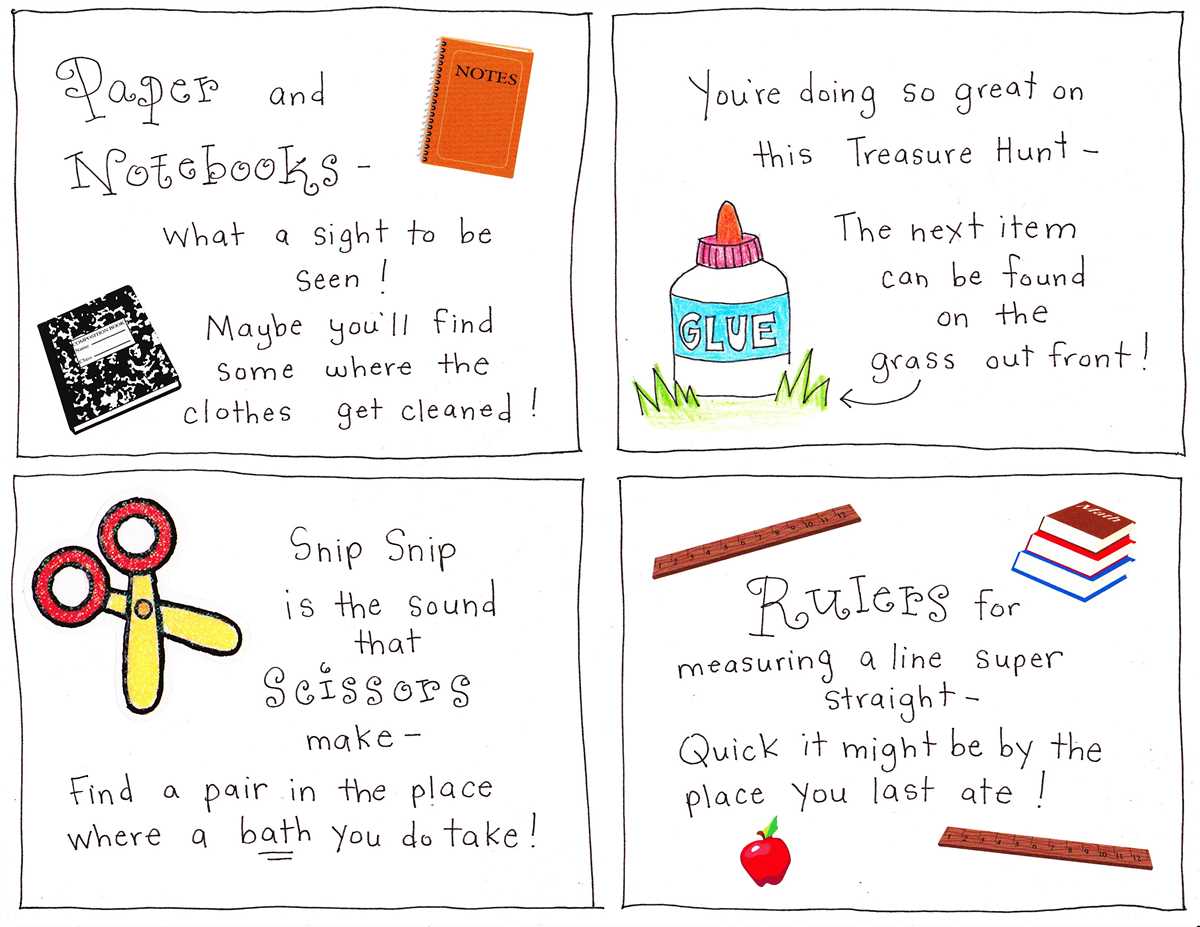 Paper and
Notebooks -
What a sight to be
seen!
Maybe you'll find
some where the
clothes get cleaned!
NOTES
COMPOSITION BOOK
Name
Class
You're doing so great on
this Treasure Hunt -
The next item
can be found
on the
grass out front!
GLUE
Snip Snip
is the sound
that
Scissors
make -
Find a pair in the place
where a bath you do take!
1 2 3 4 5 6 7 8 9 10 11 12
Math
Rulers for
measuring a line super
straight -
Quick it might be by the
place you last ate!
1 2 3 4 5 6 7 8 9 10 11 12